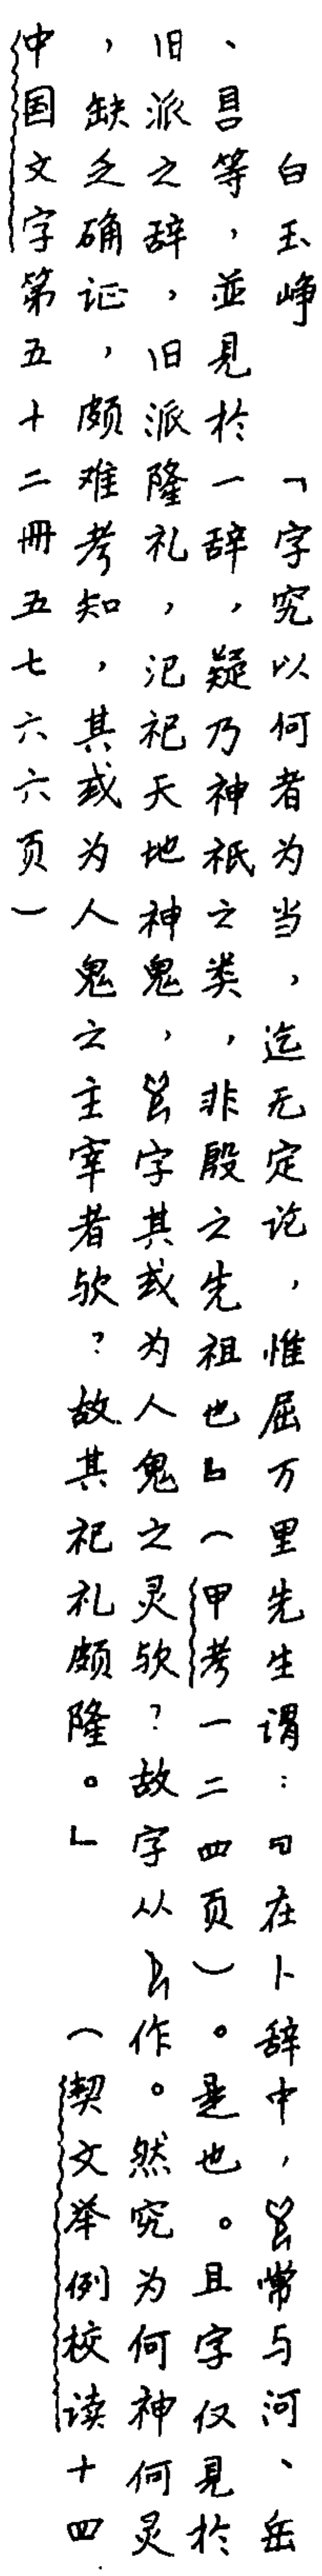 白玉峥　「字究以何者为当，迄无定论，惟屈万里先生谓：『在卜辞中，常与河、岳
、昌等，並見於一辞，疑乃神祇之类，非殷之先祖也』（甲考一二四页）。是也。且字仅見於
旧派之辞，旧派隆礼，汜祀天地神鬼，字其或为人鬼之灵欤？故字从作。然究为何神何灵
，缺乏确证，颇难考知，其或为人鬼之主宰者欤？故其祀礼颇隆。」（契文举例校读十四
中国文字第五十二冊五七六六页）